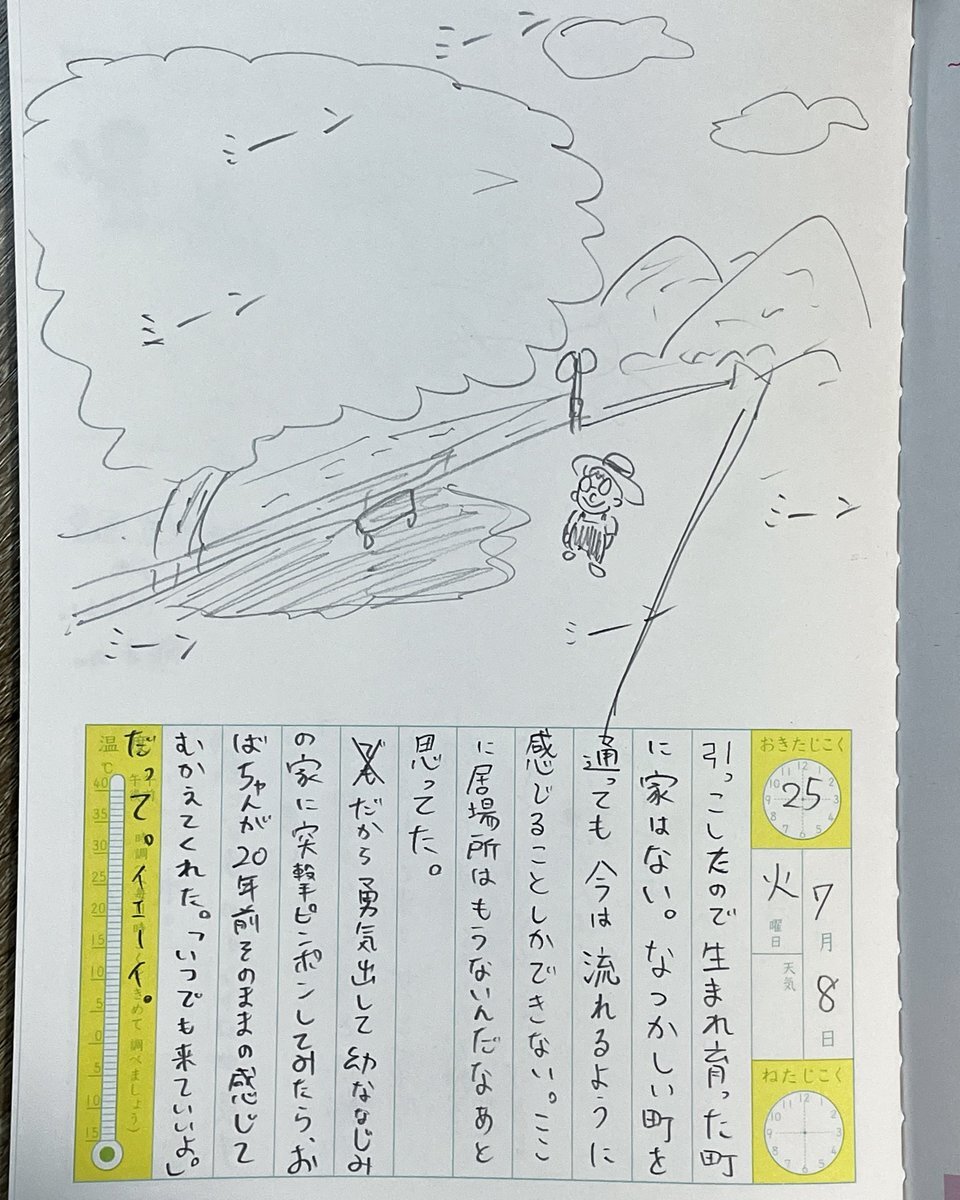 ミーン
ミーン
ミーン
ミーン
ミーン
ミーン
おきたじこく
25
7月8日
火曜日
天気
ねたじこく
引っこしたので生まれ育った町
に家はない。なつかしい町を
通っても今は流れるように
感じることしかできない。ここ
に居場所はもうないんだなあと
思ってた。
だから勇気出して幼ななじみ
の家に突撃ピンポンしてみたら、お
ばちゃんが20年前そのままの感じて
むかえてくれた。「いつでも来ていいよ。」
だって。イエーイ。
温度
℃
40
35
30
25
20
15
10
5
0
5
10
15